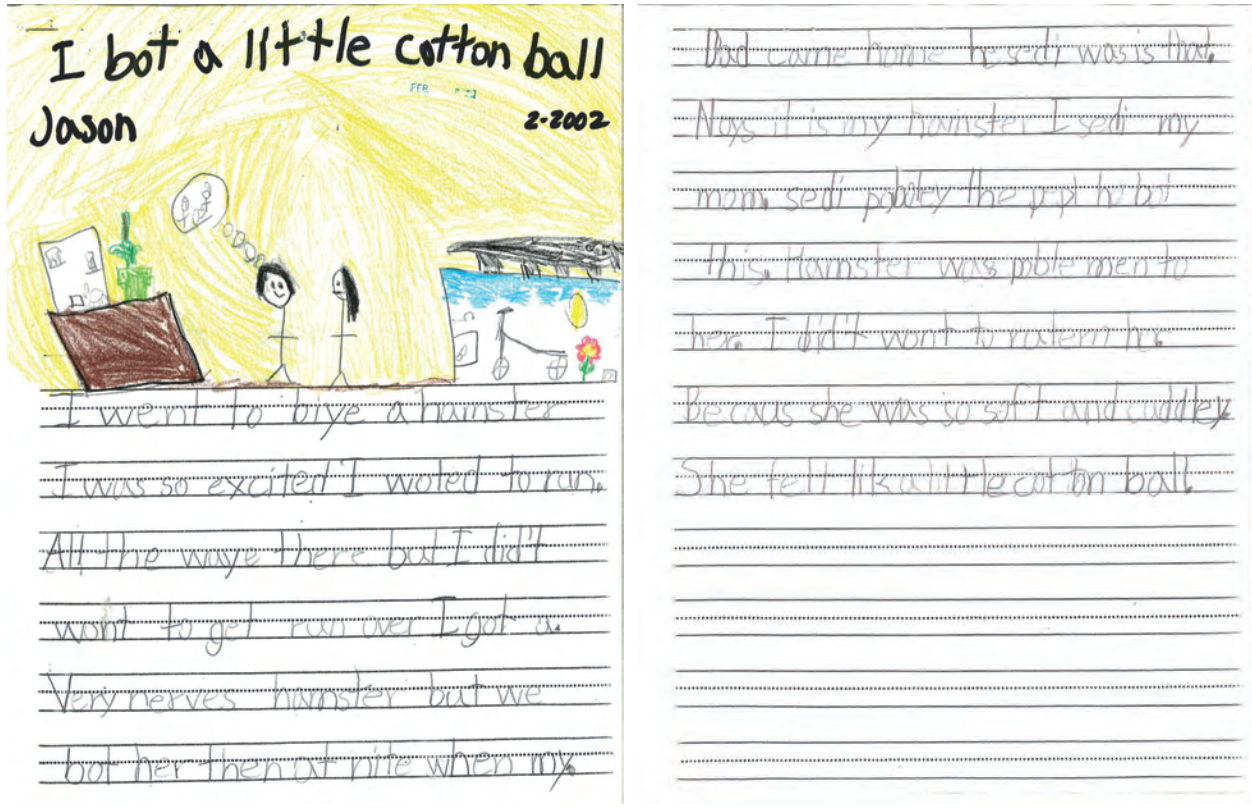 I bot a little cotton ball
Jason
2-2002
I went to biye a hamster
I was so excited I woted to run.
All the waye there but I did't
wont to get run over I got a.
Very nerves hamster but we
bot her then at nite when my.
Dad came home he sedi was is that.
Noys it is my hamster I sedi my
mom. sedi pobbley the pepl ho bot
this. Hamster was poble men to
her. I did't wont to ratern her.
Becaus she was so soft and cuddley
She felt lik a little cotton ball.